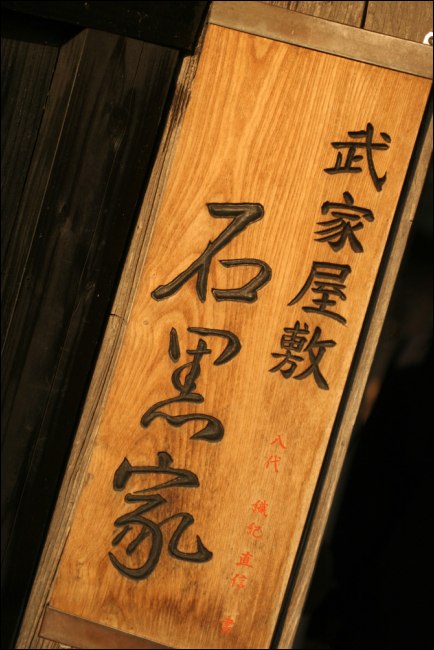 武家屋敷
石黒家
八代 直信 書